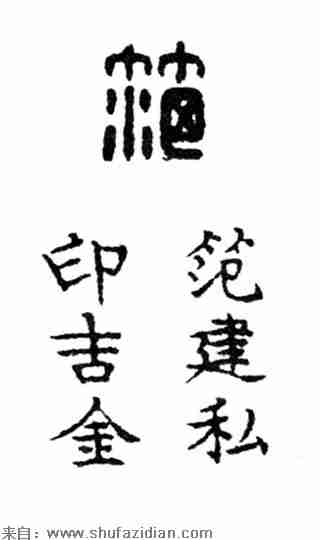 笵
笵建私
印吉金
来自：www.shufazidian.com